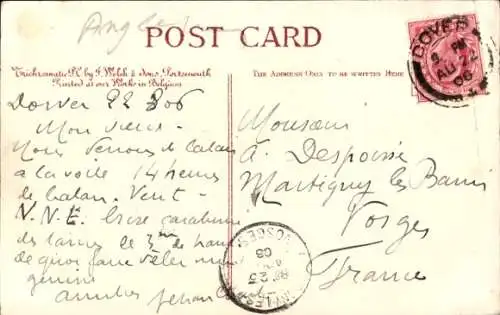 Angleterre
POST CARD
Trichromatic P.C. by F. Welch & Sons, Portsmouth
Printed at our Works in Belgium
THE ADDRESS ONLY TO BE WRITTEN HERE
DOVER
PM
AU 22
06
Dover 22 8 06
Mon vieux -
Nous venons de Calais
a la voile 14 heures
de Calais. Vent -
N.N.E. brise carabinée
des lames de 3m de haut
de quoi faire vêler une
génisse
amitiés Jehan
Monsieur
A. Despoisse
Martigny les Bains
Vosges
France
VOSGES
25
06